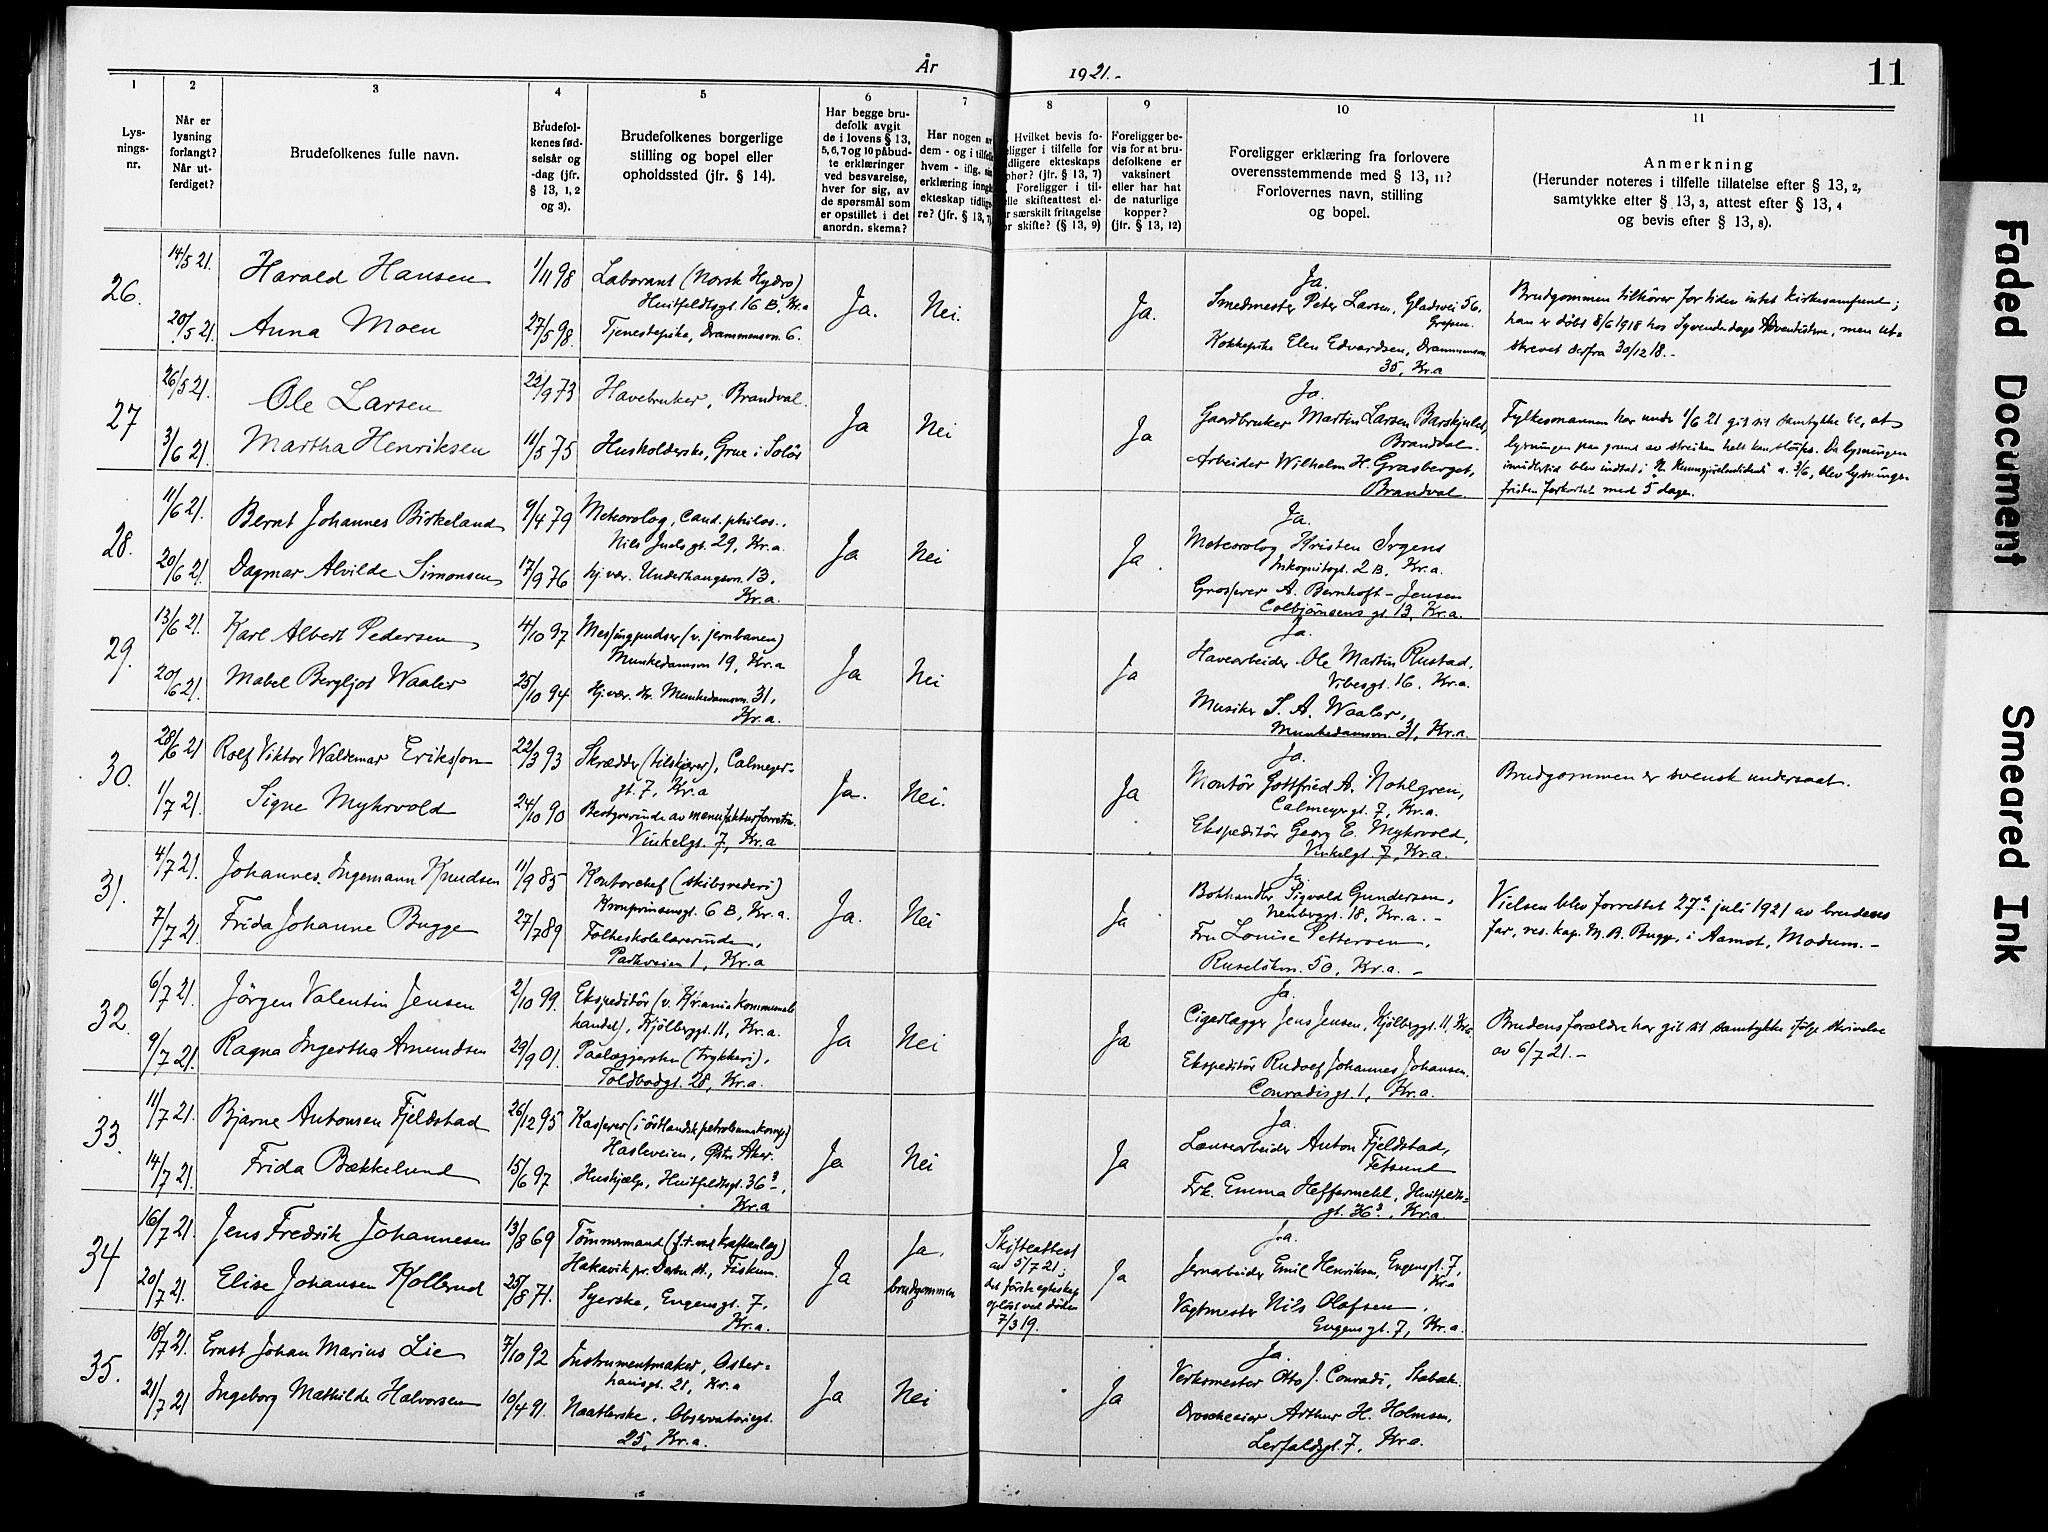 År 1921.-
11
1
2
3
4
5
6
7
8
9
10
11
Lys-
nings-
nr.
Når er
lysning
forlangt?
Når ut-
ferdiget?
Brudefolkenes fulle navn.
Brudefol-
kenes fød-
selsår og
-dag (jfr.
§ 13, 1, 2
og 3).
Brudefolkenes borgerlige
stilling og bopel eller
opholdssted (jfr. § 14).
Har begge bru-
defolk avgit
de i lovens § 13,
5, 6, 7 og 10 påbud-
te erklæringer
ved besvarelse,
hver for sig, av
de spørsmål som
er opstillet i det
anordn. skema?
Har nogen av
dem - og i tilfelle
hvem - iflg. sin
erklæring inngåt
ekteskap tidlige-
re? (jfr. § 13, 7)
Hvilket bevis fo-
religger i tilfelle for
tidligere ekteskaps
ophør? (jfr. § 13, 7)
Foreligger i til-
felle skifteattest el-
ler særskilt fritagelse
for skifte? (§ 13, 9)
Foreligger be-
vis for at bru-
defolkene er
vaksinert
eller har hat
de naturlige
kopper?
(jfr. § 13, 12)
Foreligger erklæring fra forlovere
overensstemmende med § 13, 11?
Forlovernes navn, stilling
og bopel.
Anmerkning
(Herunder noteres i tilfelle tillatelse efter § 13, 2,
samtykke efter § 13, 3, attest efter § 13, 4
og bevis efter § 13, 8).
26.
14/5 21.
Harald Hansen
1/11 98
Laborant (Norsk Hydro)
Huitfeldtsgt. 16 B, Kr.a
20/5 21.
Anna Moen
27/5 98.
Tjenestepike, Drammensvn. 6.
Ja.
Nei.
Ja.
Ja.
Smedmester Peter Larsen, Gladsvei 56,
Grefsen.
Kokkepike Elen Edvardsen, Drammensvn.
35, Kr.a
Brudgommen tilhører for tiden intet kirkesamfund;
han er døbt 8/6 1918 hos Syvendedags Adventistene, men ut-
skrevet derfra 30/12 18.-
27
26/5 21.
Ole Larsen
22/9 73
Havebruker, Brandval.
3/6 21.
Martha Henriksen
11/5 75
Husholderske, Grue i Solør
Ja
Nei
Ja
Ja.
Gaardbruker Martin Larsen Barskjulet,
Brandval.
Arbeider Wilhelm H. Grasberget,
Brandval
Fylkesmannen har under 1/6 21 git sit samtykke til, at
lysningen paa grund av streiken helt kan sløifes. Da lysningen
imidlertid blev indtat i N. Kunngjørelsestidende a. 3/6, blev lysnings-
fristen forkortet med 5 dage.
28.
11/6 21.
Bernt Johannes Birkeland
9/4 79
Meteorolog, cand. philos.,
Nils Juels gt. 29, Kr.a.
20/6 21.
Dagmar Alvilde Simonsen
17/9 76
Hj.vær. Underhaugsvn. 13,
Kr.a.
Ja
Nei
Ja.
Ja.
Meteorolog Kristen Irgens
Inkognitogt. 2B, Kr.a.
Grosserer A. Bernhoft-Jensen
Colbjørnsens gt. 13, Kr.a.
29.
13/6 21.
Karl Albert Pedersen
4/10 97
Messingpudser (v. jernbanen)
Munkedamsvn 19, Kr.a
20/6 21.
Mabel Bergljot Waaler
25/10 94
Hj.vær. Munkedamsvn. 31,
Kr.a.
Ja
Nei
Ja
Ja.
Havearbeider Ole Martin Rustad,
Vibesgt. 16, Kr.a.
Musiker S. A. Waaler,
Munkedamsvn. 31, Kr.a.
30.
28/6 21
Rolf Viktor Waldemar Eriksson
22/3 93
Skrædder (tilskjærer), Calmeyer-
gt. 7, Kr.a
1/7 21.
Signe Myhrvold
24/10 90
Bestyrerinde av manufakturforretn.
Vinkelgt. 7, Kr.a
Ja.
Nei.
Ja
Ja.
Montør Gottfried A. Nohlgren,
Calmeyergt. 7, Kr.a.
Ekspeditør Georg E. Myhrvold,
Vinkelgt. 7, Kr.a.
Brudgommen er svensk undersaat.
31.
4/7 21.
Johannes Ingemann Knudsen
11/9 85
Kontorchef (skibsrederi)
Kronprinsensgt. 6 B, Kr.a.
7/7 21.
Frida Johanne Bugge
27/7 89
Folkeskolelærerinde,
Parkveien 1, Kr.a
Ja.
Nei
Ja
Ja.
Bokhandler Sigvald Gundersen,
Neuberggt. 18, Kr.a.-
Fru Louise Petterøen,
Ruseløkvn. 50, Kr.a.-
Vielsen blev forrettet 27de juli 1921 av brudens
far, res. kap. M. B. Bugge, i Aamot, Modum.-
32.
6/7 21.
Jörgen Valentin Jensen
2/10 99.
Ekspeditör (v. Kr.ania kommunale
handel), Kjölberggt. 11, Kr.a.
9/7 21.
Ragna Ingertha Amundsen
29/9 01.
Paalæggerske (trykkeri),
Toldbodgt. 28, Kr.a.
Ja
Nei
Ja
Ja.
Cigarlægger Jens Jensen, Kjölberggt. 11, Kr.a.
Ekspeditör Rudolf Johannes Johansen,
Conradisgt. 1, Kr.a.
Brudens forældre har git sit samtykke ifølge skrivelse
av 6/7 21.-
33.
11/7 21.
Bjarne Antonsen Fjeldstad
26/12 95
Kasserer (i östlandsk petroleumskomp)
Hasleveien, Østre Aker.
14/7 21.
Frida Bækkelund
15/6 97
Hushjælp, Huitfeldtsgt. 36³-,
Kr.a
Ja
Nei
Ja
Ja.
Lensearbeider Anton Fjeldstad,
Fetsund
Frk. Emma Heffermehl, Huitfeldts-
gt. 36³, Kr.a.
34
16/7 21.
Jens Fredrik Johannesen
13/8 69
Tömmermand (f.t. ved kraftanlæg)
Hakavik pr. Darbu st., Fiskum.
20/7 21.
Elise Johansen Kollerud
25/8 71.
Syerske, Eugensgt. 7,
Kr.a.
Ja
Ja,
brudgommen
Skifteattest
av 5/7 21;
det første egteskap
opløst ved døden
7/3 19.
Ja
Ja.
Jernarbeider Emil Henriksen, Eugensgt. 7,
Kr.a
Vagtmester Nils Olafsen,
Eugensgt. 7, Kr.a.
35.
18/7 21.
Ernst Johan Marius Lie
7/10 92
Instrumentmaker, Oster-
hausgt. 21, Kr.a
21/7 21
Ingeborg Mathilde Halvorsen
10/4 91.
Naatlerske, Observatoriegt.
25, Kr.a.
Ja
Nei
Ja
Ja.
Verksmester Otto J. Conradi, Stabæk.
Droscheeier Arthur H. Holmsen,
Lerfaldsgt. 7, Kr.a.
Faded Document
Smeared Ink